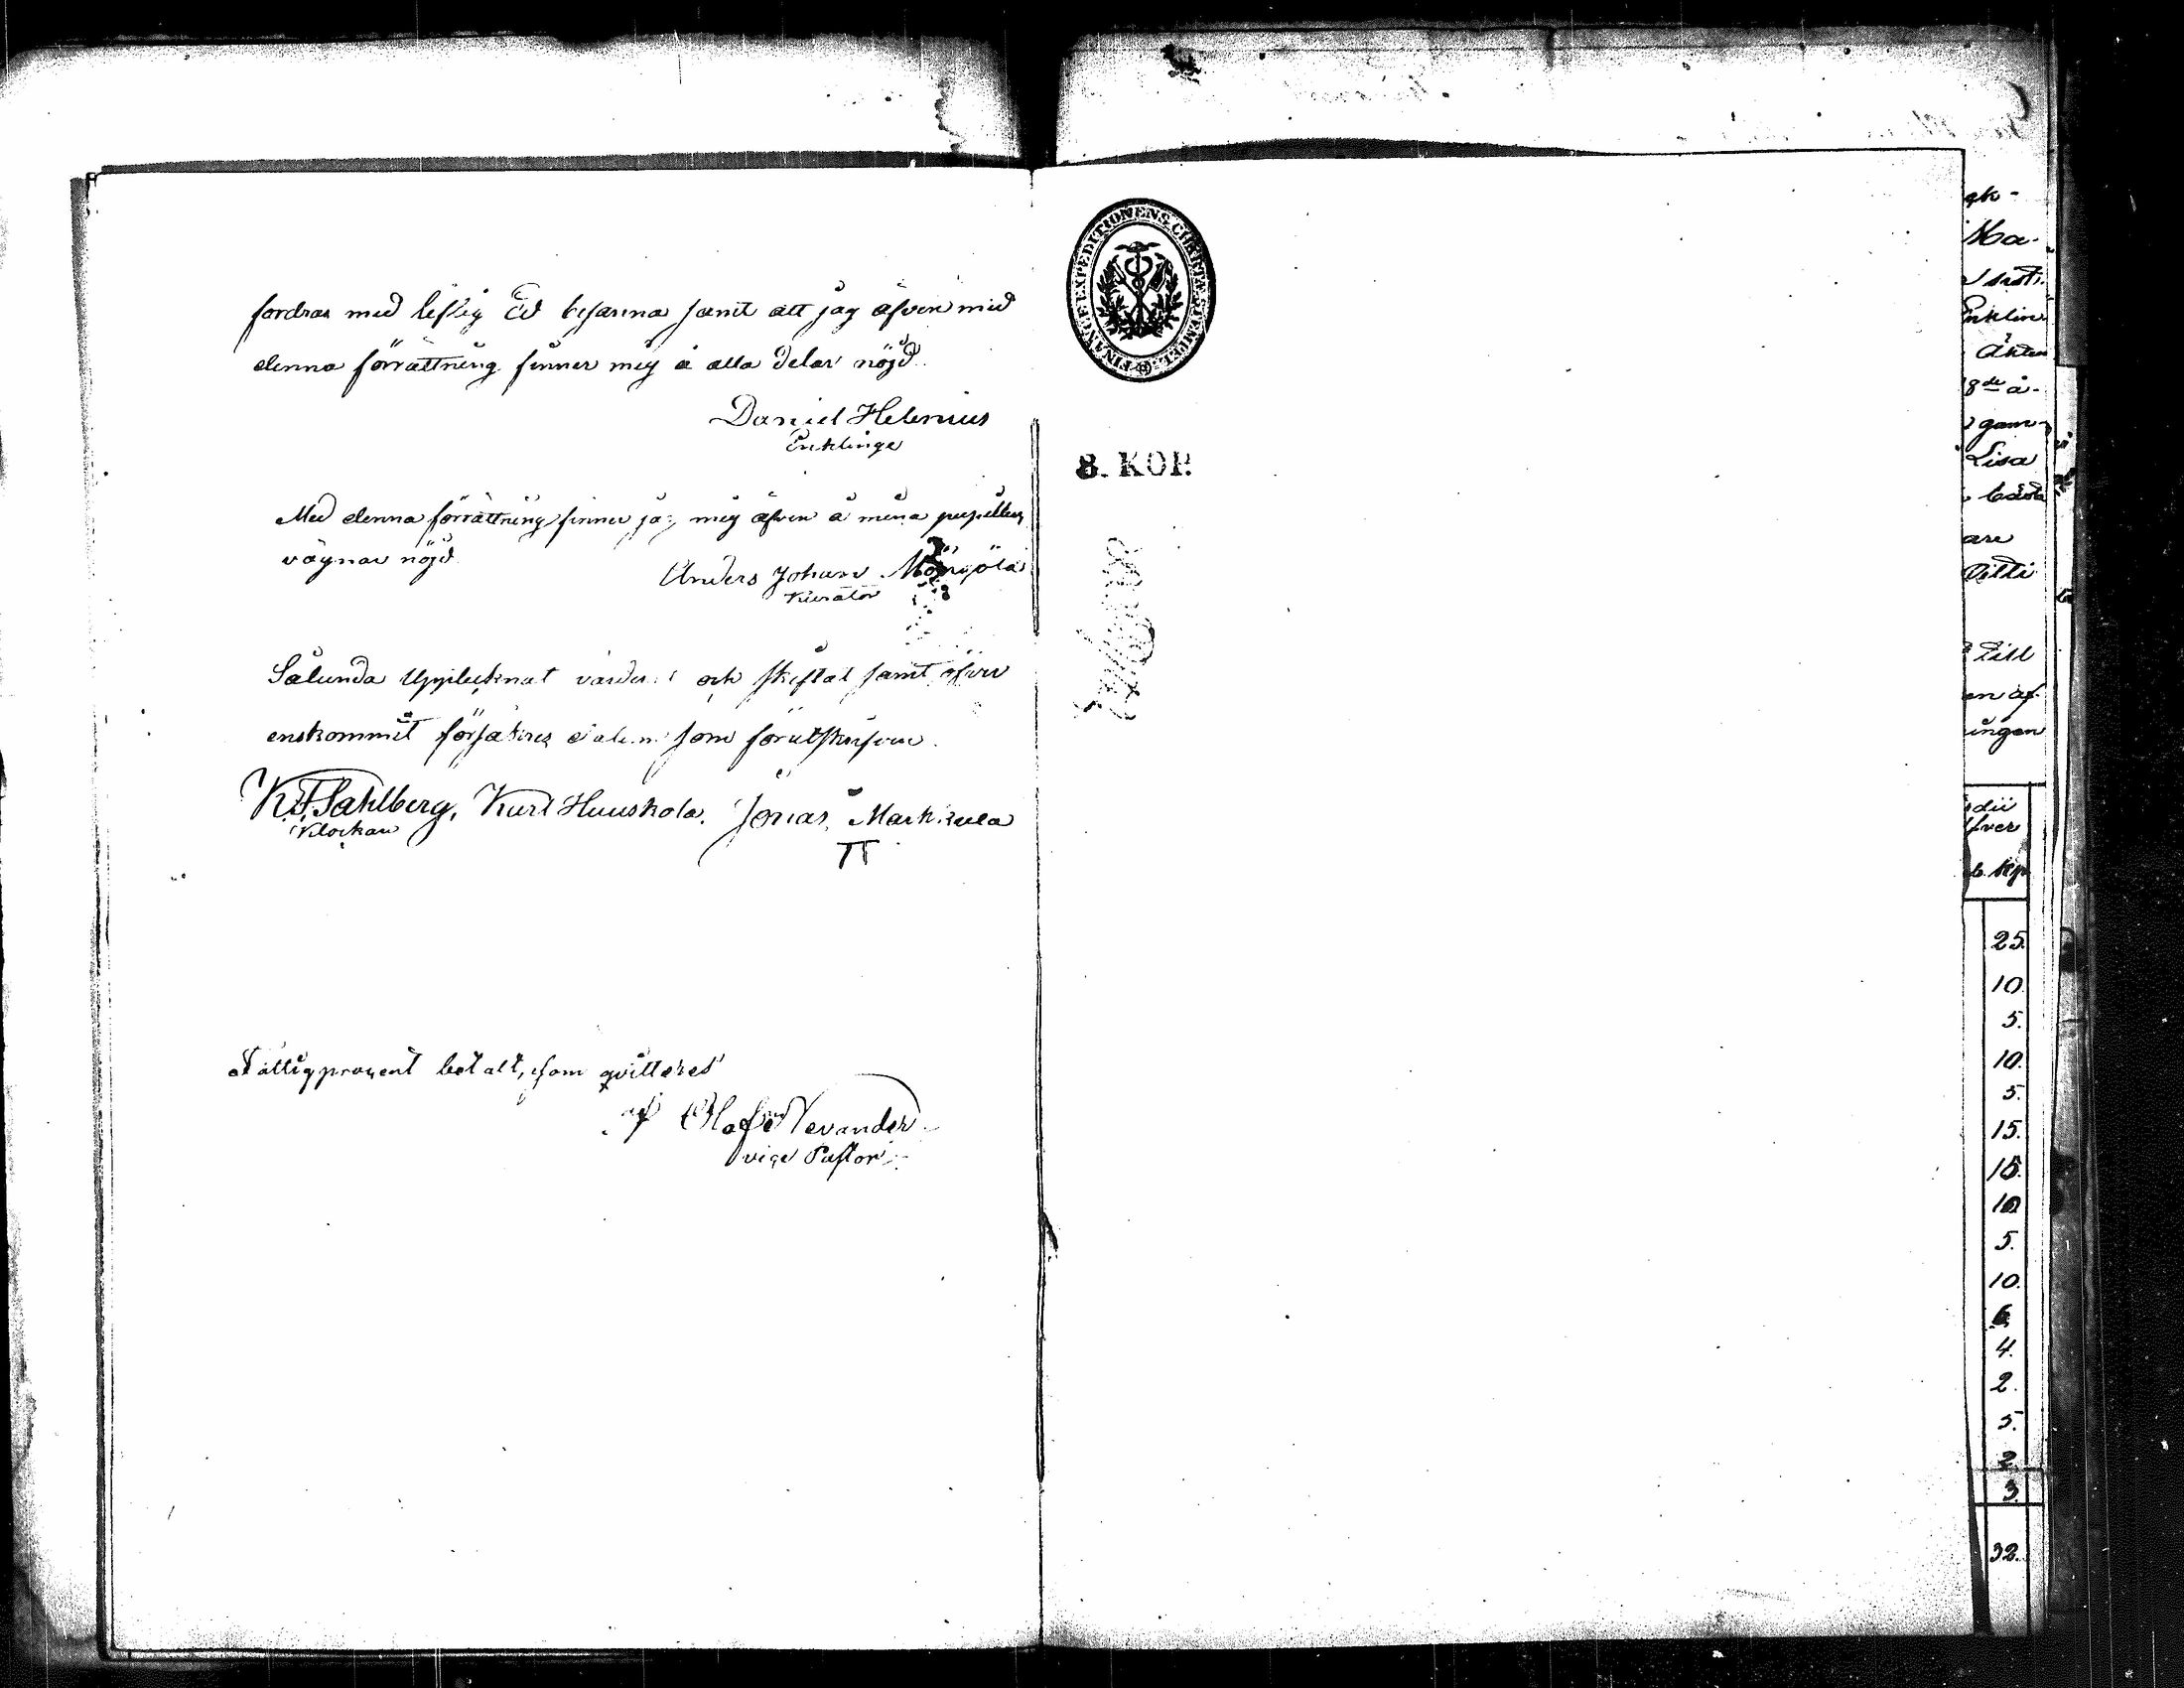 fordras med liflig Ed besanna samt att jag äfven med
denna förrättning finner mig å alla delar nöjd.
Daniel Helenius
Enklinge
Med denna förrättning finner jag mig äfven å mina pupillers
vägnar nöjd
Anders Johan
Kurator
Sålunda Uppteknat värderat och skiftat samt öfver
enskommit försäkres datum som förutskrifven.
K. F. Sahlberg, Karl Huuskola. Jonas Markkula
Klockare
Fattigprocent betalt, som qvitteres
af Olof Nevander
vice Pastor
FINANCE EXPEDITIONENS CHARTÆ
8. KOP.
Ma-
Enklin
Äkten
8de å-
gam-
Lisa
are
till
en af
ingen
dii
fver
Kp
25.
10.
5.
10.
5.
15.
15.
10.
5.
10.
6.
4.
2.
5.
2.
3.
32.